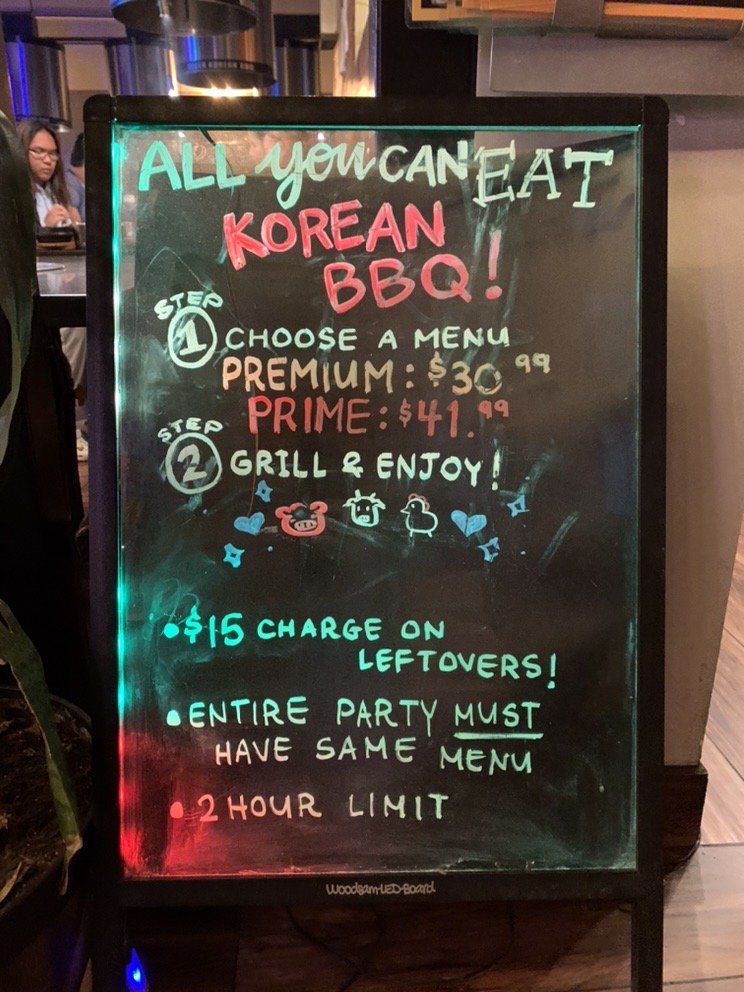 ALL you CAN EAT
KOREAN
BBQ!
STEP
1 CHOOSE A MENU
PREMIUM: $30.99
PRIME: $41.99
STEP
2 GRILL & ENJOY!
• $15 CHARGE ON
LEFTOVERS!
• ENTIRE PARTY MUST
HAVE SAME MENU
• 2 HOUR LIMIT
Woodsam-LED-Board